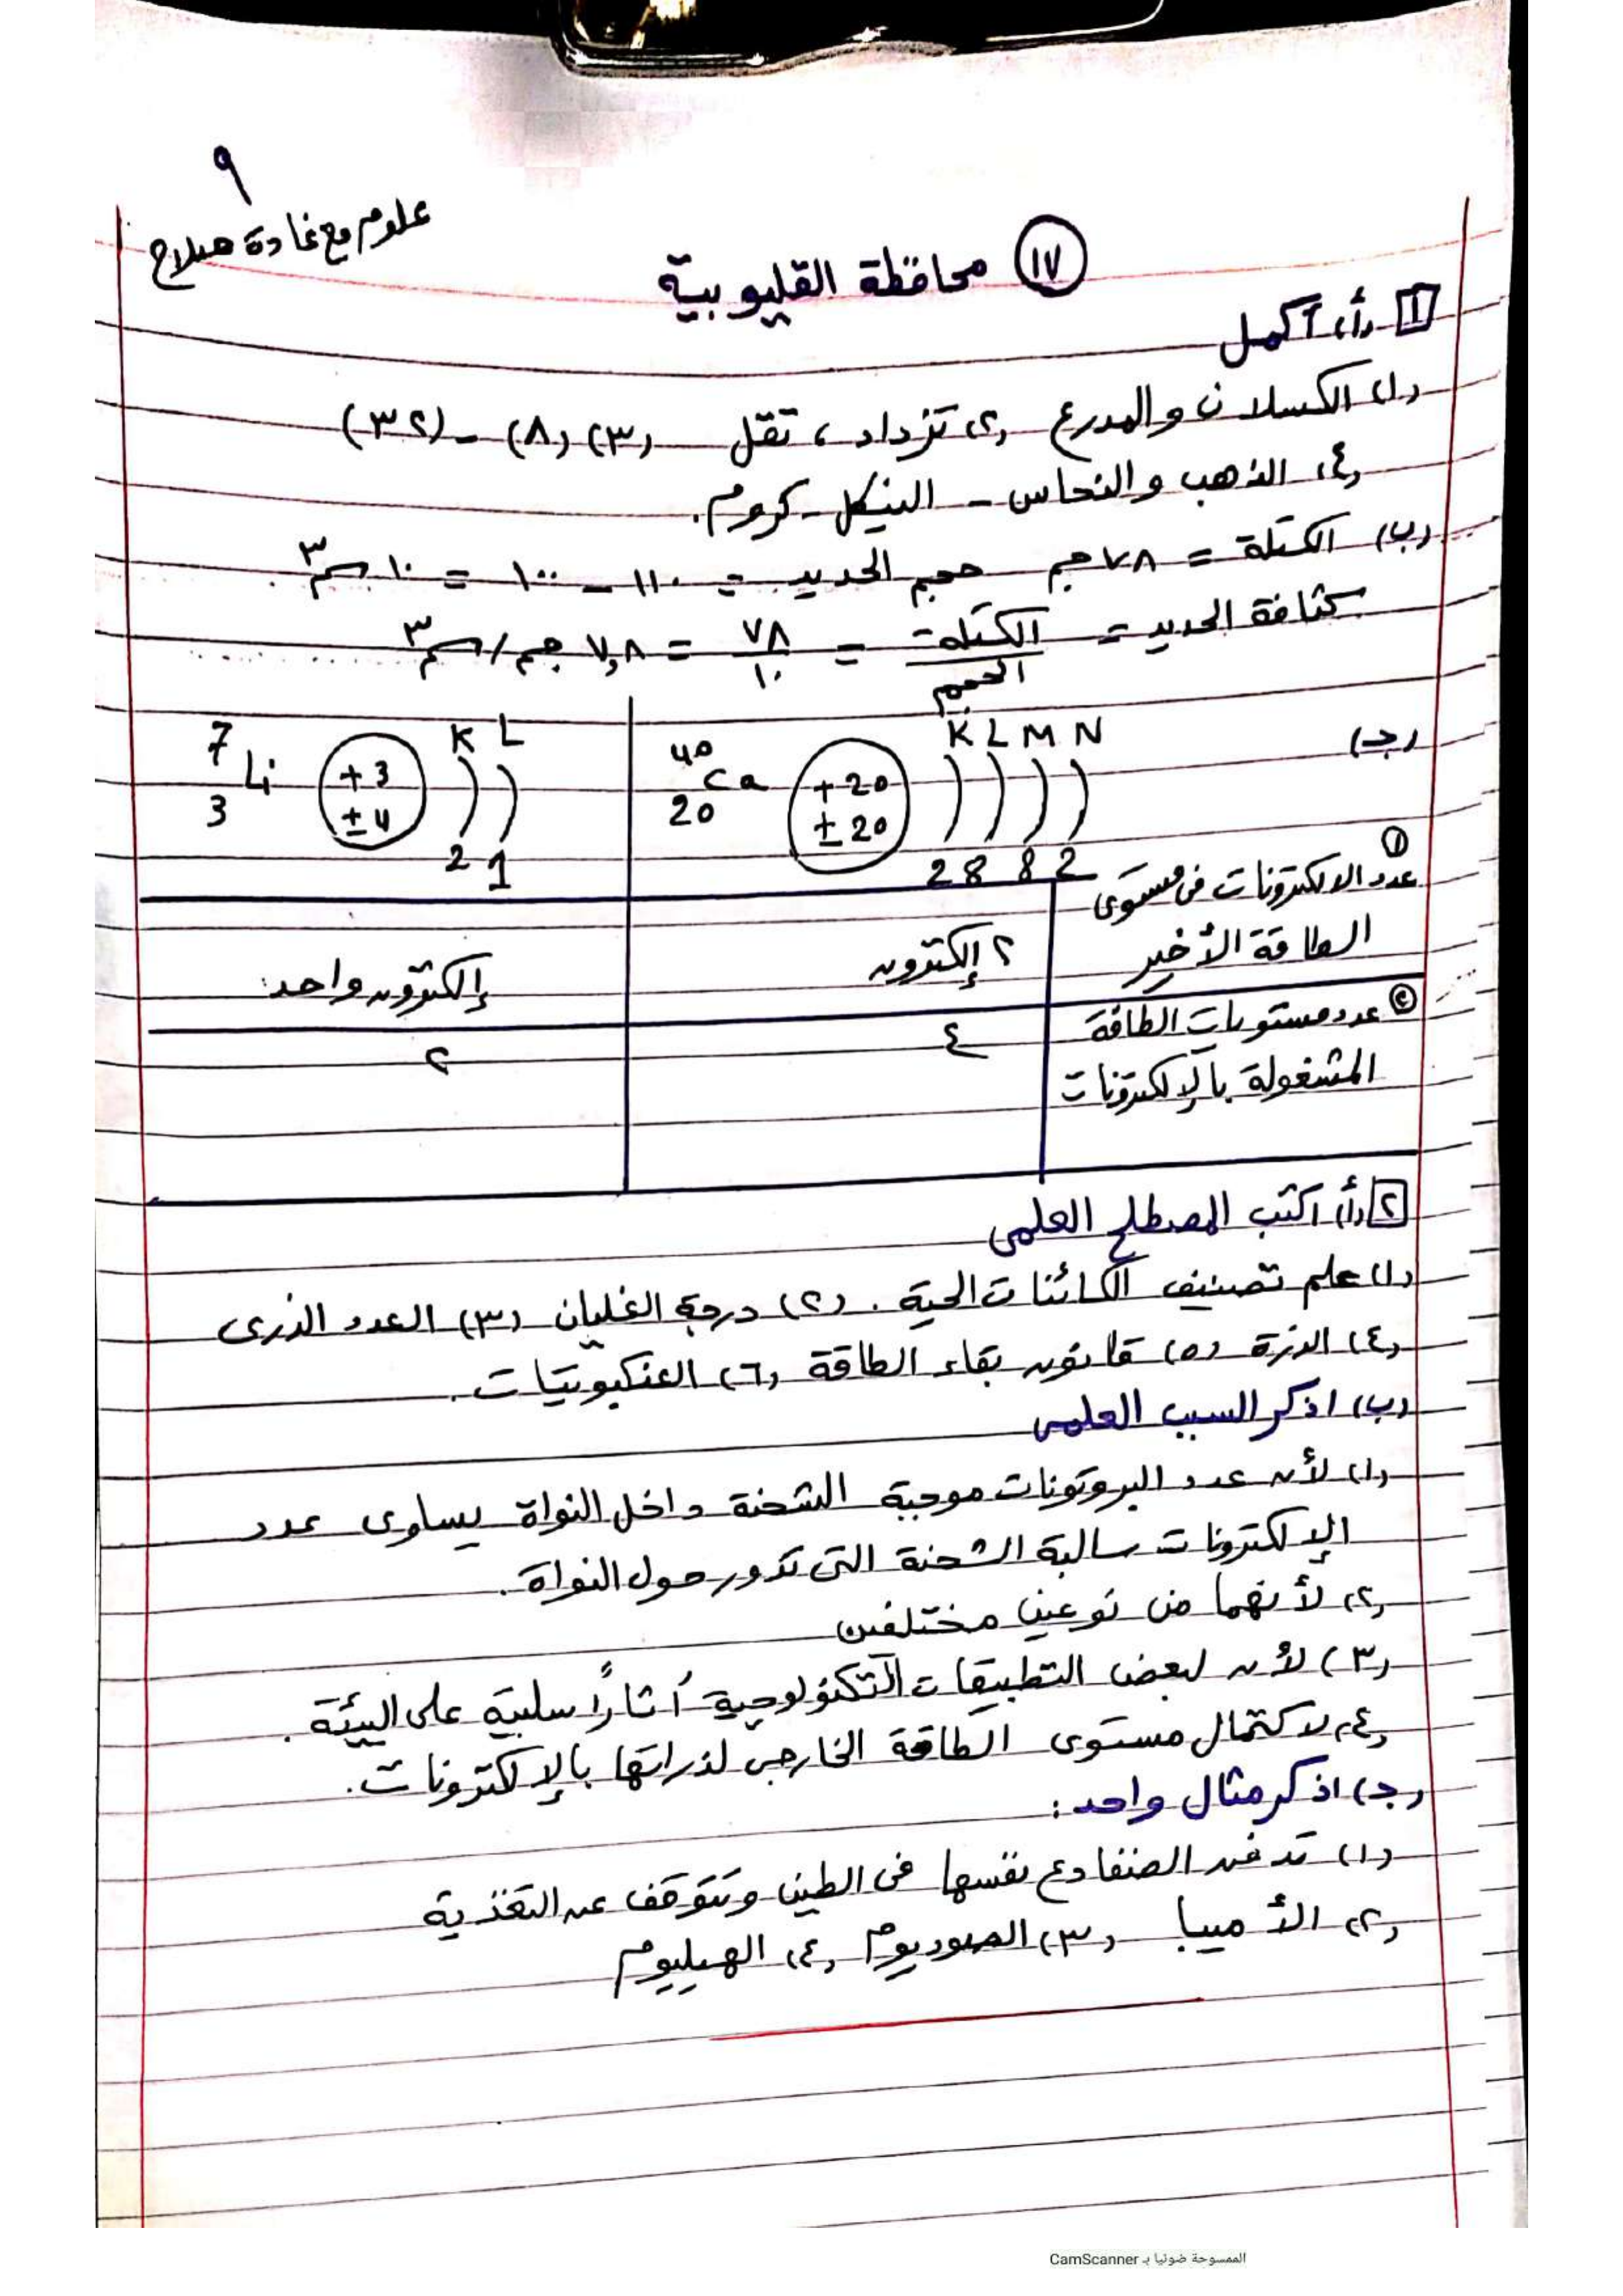 ٩
علوم مع غادة صلاح
١٧ محافظة القليوبية
١ (أ) أكمل
(١) الكسلان والمدرع (٢) تزداد ، تقل (٣) (٨) - (٣٢)
(٤) الذهب والنحاس - النيكل - كروم.
(ب) الكتلة = ٧٨ جم حجم الحديد = ١١٠ - ١٠٠ = ١٠ سم٣
كثافة الحديد = الكتلة / الحجم = ٧٨ / ١٠ = ٧,٨ جم/سم٣
(جـ)
K L M N
40 Ca 20 +20 ± 20
2 8 8 2
K L
7 Li 3 +3 ± 4
2 1
① عدد الالكترونات فى مستوى
الطاقة الأخير
٢ إلكترون
إلكترون واحد
② عدد مستويات الطاقة
المشغولة بالإلكترونات
٤
٢
٢ (أ) اكتب المصطلح العلمى
(١) علم تصنيف الكائنات الحية . (٢) درجة الغليان (٣) العدد الذرى
(٤) الذرة (٥) قانون بقاء الطاقة (٦) العنكبوتيات .
(ب) اذكر السبب العلمى
(١) لأن عدد البروتونات موجبة الشحنة داخل النواة يساوى عدد
الإلكترونات سالبة الشحنة التى تدور حول النواة .
(٢) لأنهما من نوعين مختلفين
(٣) لأن لبعض التطبيقات التكنولوجية أثاراً سلبية على البيئة .
(٤) لاكتمال مستوى الطاقة الخارجى لذراتها بالإلكترونات .
(جـ) اذكر مثال واحد :
(١) تدفن الضفادع نفسها فى الطين وتتوقف عن التغذية
(٢) الأميبا (٣) الصوديوم (٤) الهيليوم
الممسوحة ضوئيا بـ CamScanner